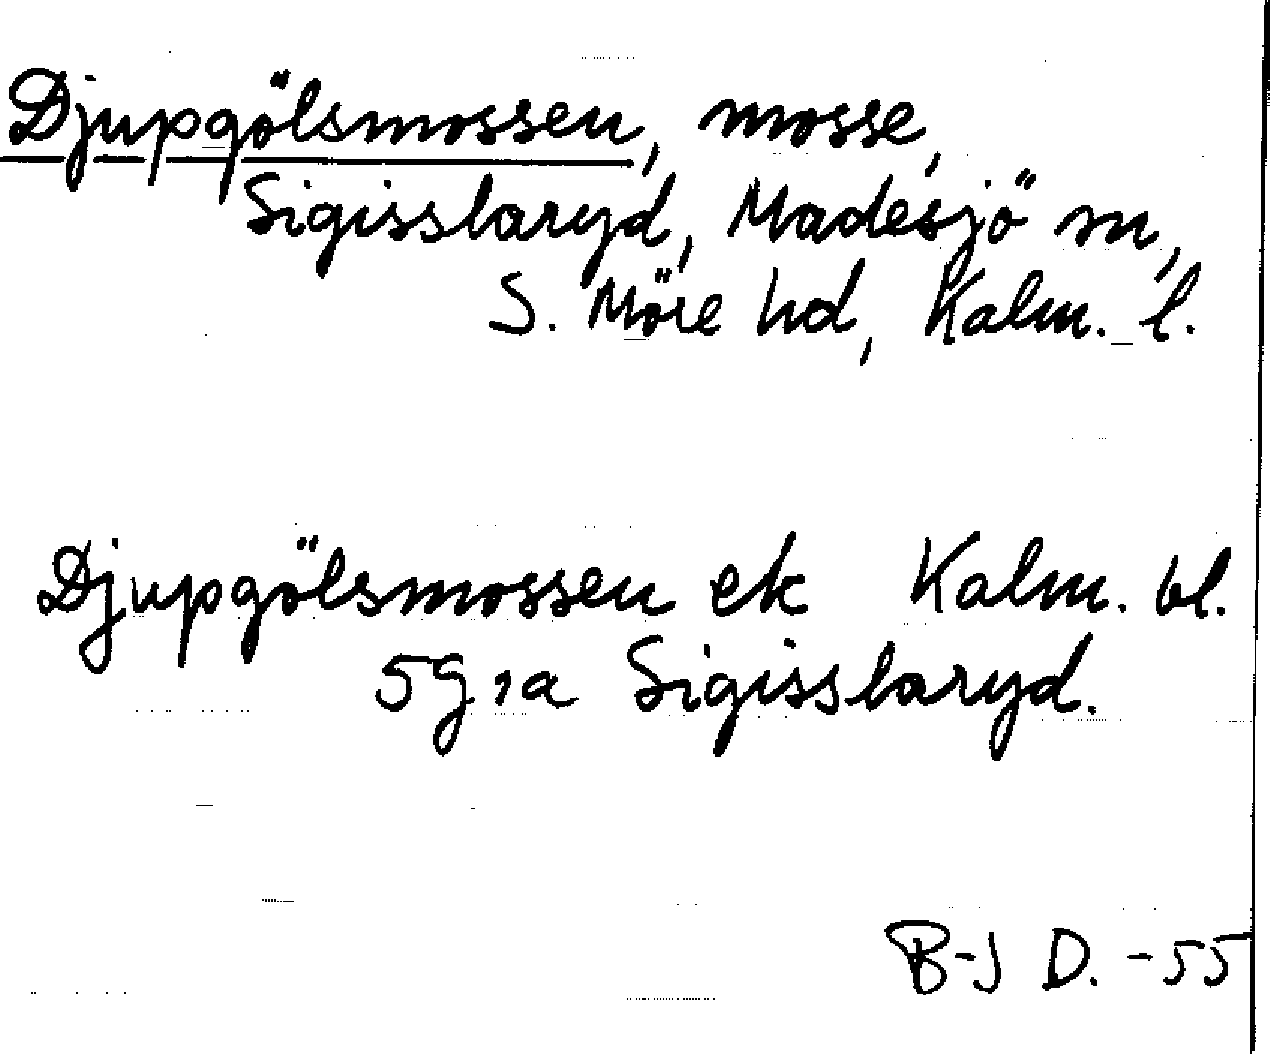 Djupgölsmossen, mosse,
Sigisslaryd, Madesjö sn,
S. Möre hd, Kalm. l.
Djupgölsmossen ek Kalm. bl.
5G1a Sigisslaryd.
B-J D. -55